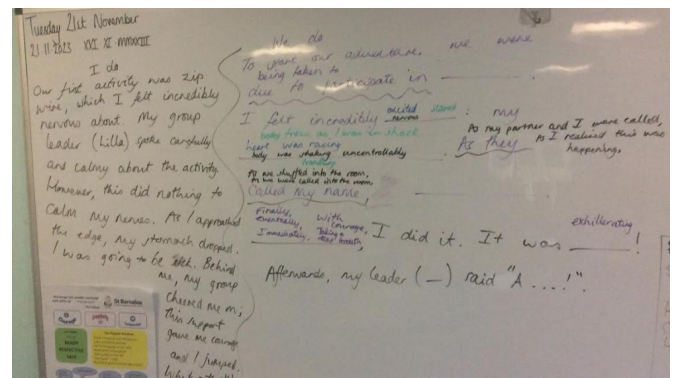 Tuesday 21st November
21 11 2023 XXI XI MMXXIII
I do
Our first activity was zip
wire, which I felt incredibly
nervous about. My group
leader (Lilla) spoke carefully
and calmy about the activity.
However, this did nothing to
calm my nerves. As I approached
the edge, my stomach dropped.
I was going to be sick. Behind
me, my group
cheered me on;
this support
gave me courage
and I jumped.
We do
To start our adventure, we were
being taken to
due to participate in
I felt incredibly excited scared : my
nervous
body froze as I was in shock
heart was racing
body was shaking uncontrollably
trembling
As they
As my partner and I were called,
As I realised this was
happening.
As we shuffled into the room,
As we were called into the room,
Called my name,
Finally,
eventually,
Immediately,
With
courage,
Taking a
deep breath
, I did it. It was exhillerating!
Afterwards, my leader (_) said "A....!".
St Barnabas
READY
RESPECTFUL
SAFE